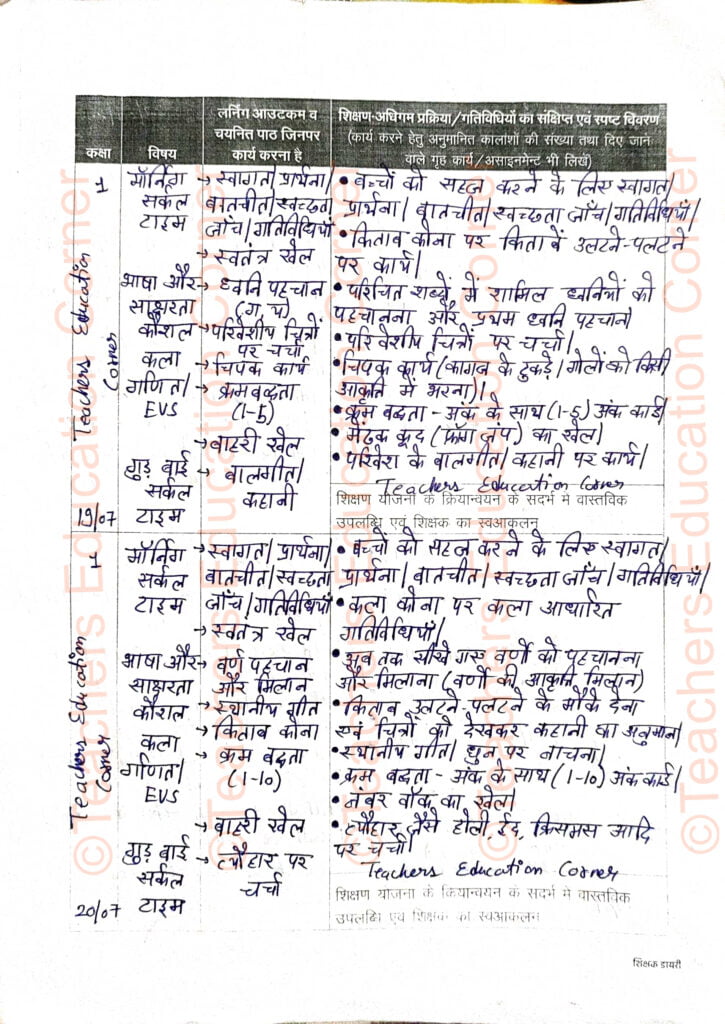 कक्षा
विषय
लर्निंग आउटकम व
चयनित पाठ जिनपर
कार्य करना है
शिक्षण-अधिगम प्रक्रिया/गतिविधियों का संक्षिप्त एवं स्पष्ट विवरण
(कार्य करने हेतु अनुमानित कालांशों की संख्या तथा दिए जाने
वाले गृह कार्य/असाइनमेंट भी लिखें)
1
मॉर्निंग
सर्कल
टाइम
→ स्वागत। प्रार्थना।
बातचीत। स्वच्छता
जाँच। गतिविधियाँ
→ स्वतंत्र खेल
• बच्चों को सहज करने के लिए स्वागत।
प्रार्थना। बातचीत। स्वच्छता जाँच। गतिविधियाँ।
• किताब कोना पर किताबें उलटने-पलटने
पर कार्य।
भाषा और
साक्षरता
कौशल
→ ध्वनि पहचान
(ग, प)
→ परिवेशीय चित्रों
पर चर्चा
• परिचित शब्दों में शामिल ध्वनियों को
पहचानना और प्रथम ध्वनि पहचान।
• परिवेशीय चित्रों पर चर्चा।
कला
→ चिपक कार्य
• चिपक कार्य (कागज के टुकड़े। गोलों को किसी
आकृति में भरना)।
गणित।
EVS
→ क्रमबद्धता
(1-5)
→ बाहरी खेल
• क्रम बद्धता - अंक के साथ (1-5) अंक कार्ड।
• मेंढक कूद (फ्रॉग जंप) का खेल।
गुड बाई
सर्कल
टाइम
→ बालगीत।
कहानी
• परिवेश के बालगीत। कहानी पर कार्य।
Teachers Education Corner
Teachers Education
Corner
19/07
शिक्षण योजना के क्रियान्वयन के सदर्भ मे वास्तविक
उपलब्धि एवं शिक्षक का स्वआकलन
1
मॉर्निंग
सर्कल
टाइम
→ स्वागत। प्रार्थना।
बातचीत। स्वच्छता
जाँच। गतिविधियाँ
→ स्वतंत्र खेल
• बच्चों को सहज करने के लिए स्वागत।
प्रार्थना। बातचीत। स्वच्छता जाँच। गतिविधियाँ।
• कला कोना पर कला आधारित
गतिविधियाँ।
भाषा और
साक्षरता
कौशल
→ वर्ण पहचान
और मिलान
→ स्थानीय गीत
→ किताब कोना
• अब तक सीखे गए वर्णों को पहचानना
और मिलाना (वर्णों की आकृति मिलान)
• किताब उलटने-पलटने के मौके देना
एवं चित्रों को देखकर कहानी का अनुमान।
कला
• स्थानीय गीत। धुन पर नाचना।
गणित।
EVS
→ क्रम बद्धता
(1-10)
→ बाहरी खेल
• क्रम बद्धता - अंक के साथ (1-10) अंक कार्ड।
• नंबर वॉक का खेल।
गुड बाई
सर्कल
टाइम
→ त्यौहार पर
चर्चा
• त्यौहार जैसे होली, ईद, क्रिसमस आदि
पर चर्चा।
Teachers Education Corner
Teachers Education
Corner
20/07
शिक्षण योजना के कियान्वयन के सदर्भ मे वास्तविक
उपलब्धि एव शिक्षक का स्वआकलन
शिक्षक डायरी
©Teachers Education Corner
©Teachers Education Corner
©Teachers Education Corner
©Teachers Education Corner
©Teachers Education Corner